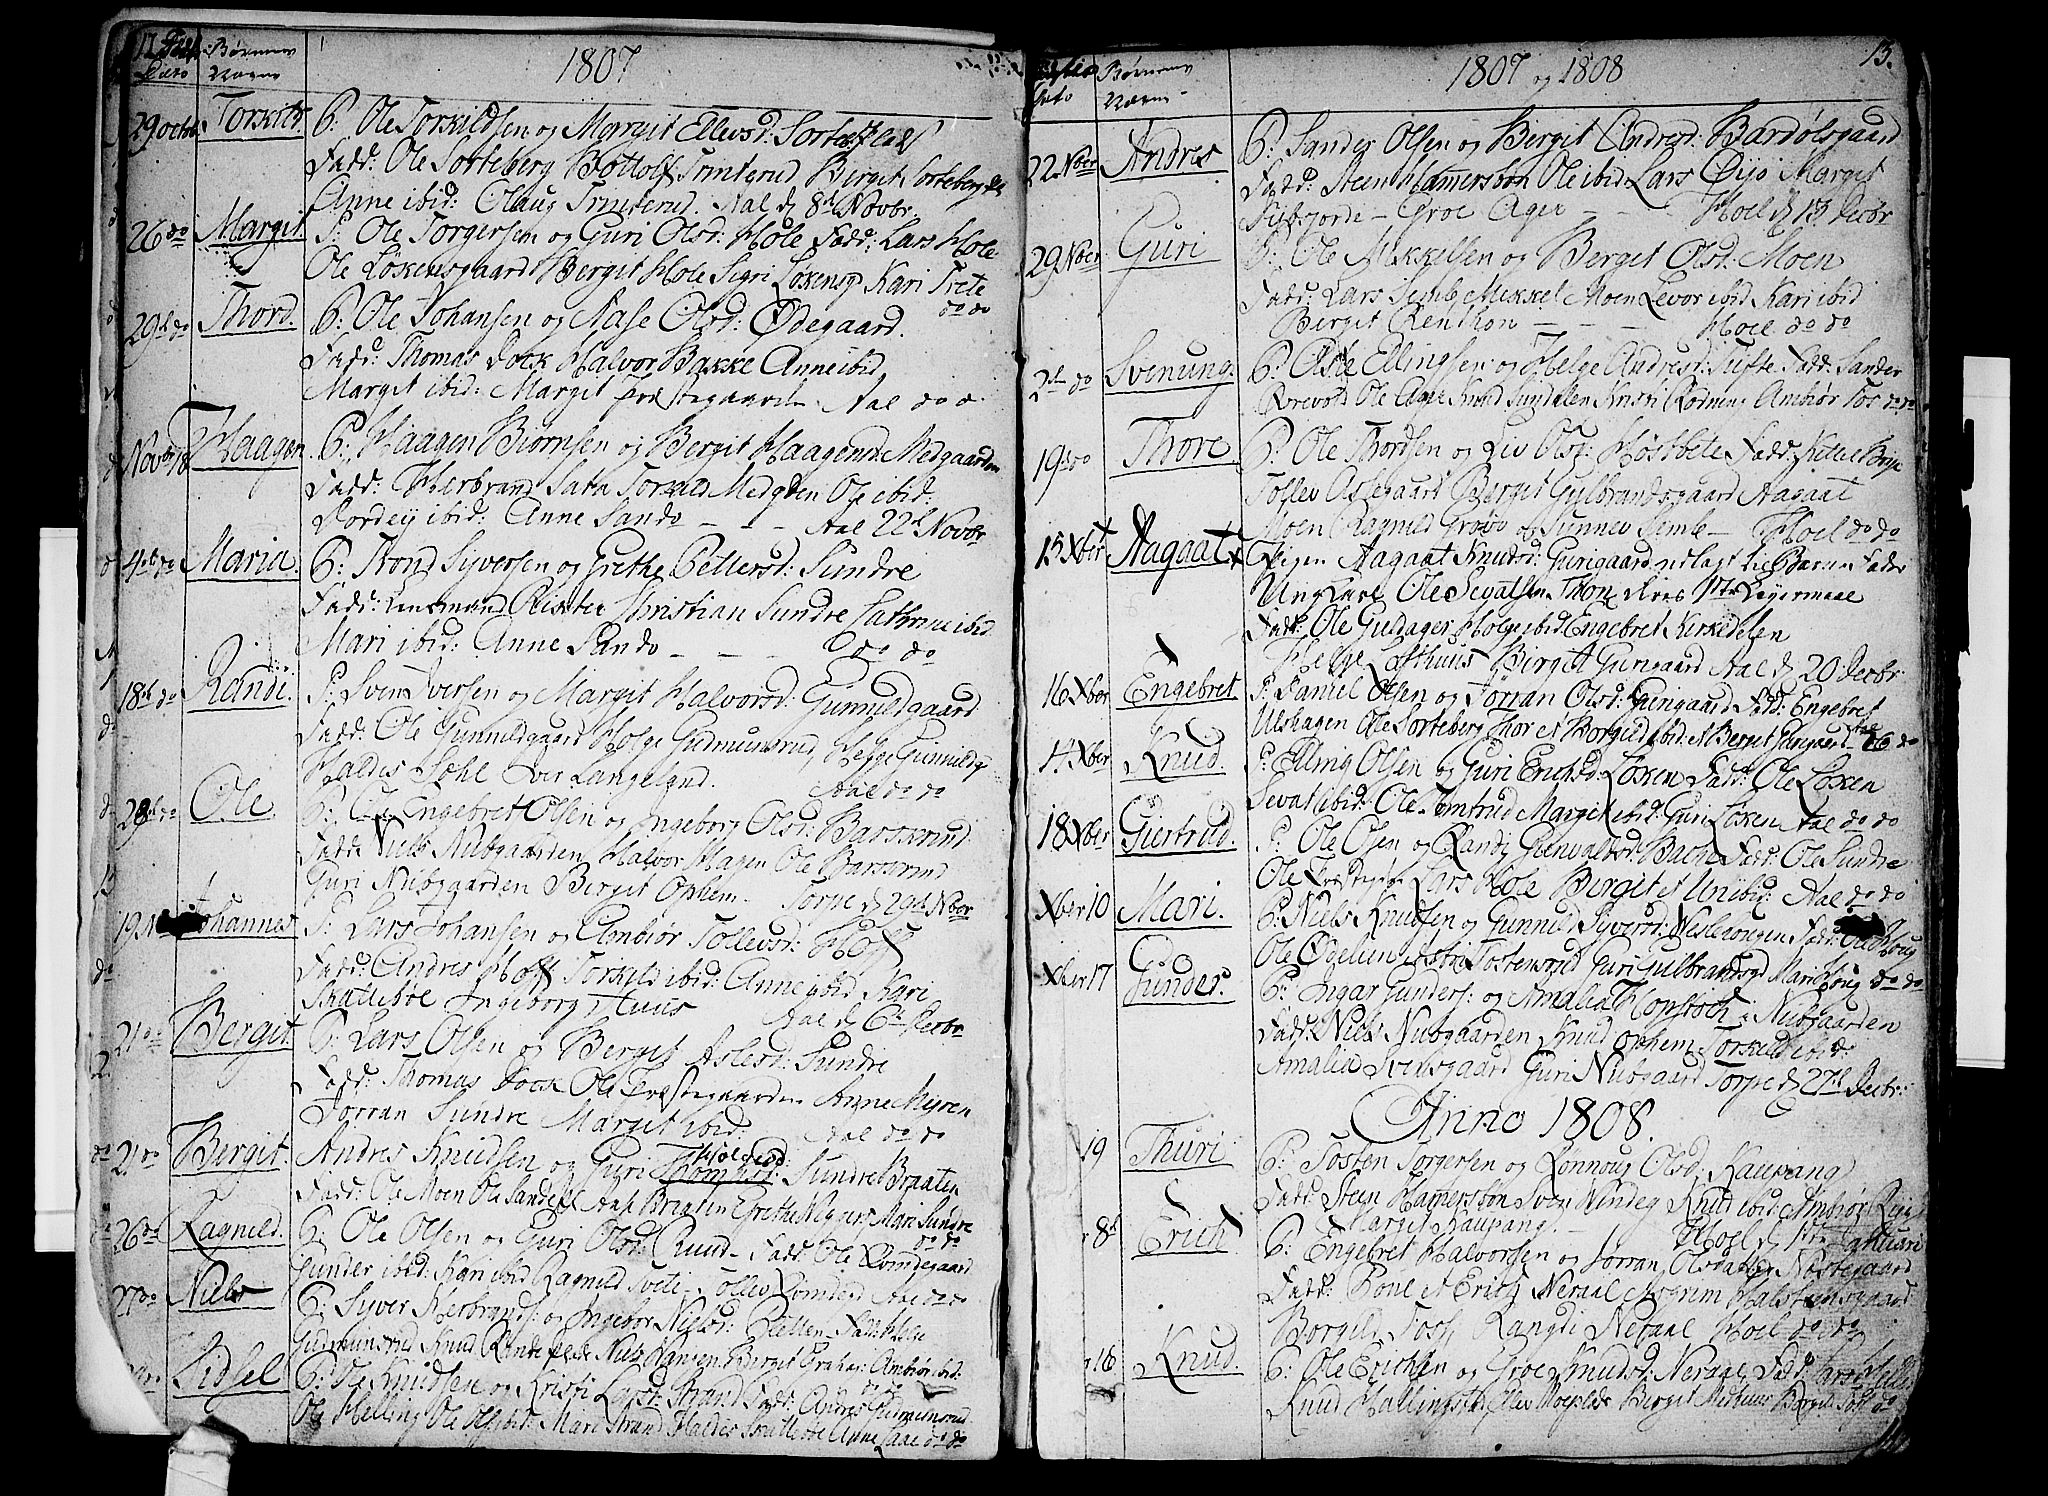 Børnenes
Navne
1807
29 octbr Torkild P: Ole Torkildsen og Margit Ellevsd: Sorteberg
Fadd: Ole Sorteberg Bottolf Trinterud Birgit Sorteberg
Anne ibid: Olaug Trinterud. Aal d 8d Novbr.
26 do Margit P: Ole Torgersen og Guri Olsd: Hole Fadd: Lars Hole
Ole Løkensgaard Berget Hole Sigri Løkensg Kari Trete
do do
29d do Thord. P: Ole Johansen og Aase Olsd: Ødegaard.
Fadd Thomas Dock Halvor Bakke Anne ibid
Margit ibid: Margit Præstegaard Aal do do
Novbr 18 Haagen P: Haagen Biørnsen og Bergit Haagensd: Medgaarden
Fadd: Herbrand Sata Torkild Medgden Ole ibid:
Dordey ibid: Anne Sando - - - Aal 22d Novbr
4de do Maria P: Trond Syversen og Grethe Pettersd: Sundre
Fadd: Lensmand Christian Sundre Cathrine ibid
Mari ibid: Anne Sando - - - do do
18de do Randi P: Sven Iversen og Margit Halvorsd: Gunnildgaard
Fadd: Ole Gunnildgaard Holge Gudmunsrud, Helge Gunnildg
Haldis Sohl Liv Langeland. Aal do do
28d do Ole P: Engebret Olsen og Ingeborg Olsd: Barskrud
Fadd: Niels Nubgaarden Halvor Hagen Ole Barskrud
Guri Nubgaarden Bergit Ophem - Torpe d 29d Nvbr
19 Johannes P: Lars Johansen og Ambiør Tollevsd: Hoff
Fadd: Andres Hoff Torkild ibid: Anne ibid Kari
Skallebøe Ingeborg Tuus Aal d 6te Decbr
21 do Bergit P: Lars Olsen og Berget Aslesd: Sundre
Fadd: Thomas Dock Ole Præstegaarden Anne Myren
Jorran Sundre Margit ibid: Aal do do
21 do Bergit. Andres Knudsen og Guri Sundre Braaten
Fadd: Ole Moen Ole Sandel Braaten Grethe Mari Sundre
do do
26 do Ragnild. P: Ole Olsen og Guri Olsd: Ruud - Fadd: Ole
Gunder ibid: Kari ibid Ragnild Sveti - Tollev Aal do do
27 do Niels P: Syver Herbrands og Ingebor Nielsd: Pletten - Fadd: Hole
Gudmunsrud Knud Niels Hansen Berget Ambiør ibid.
do do
Sidsel P: Ole Knudsen og Kristi Larsd: Strand Fadd: Andres Gudmunsrud
Ole Helling Ole ibid: Mari Strand Haldis Anne Aal do do
13.
Børnenes
Navne
1807 og 1808
22 Nber Andres P: Sander Olsen og Berget Andresd: Bardølsgaard
Fadd: Steen Hamersbøn Ole ibid: Lars Øijo Margit
- Groe Ager - - - Hoel d 13 Decbr
29 Nber Guri P: Ole Mikkelsen og Berget Olsd: Moen
Fadd: Lars Semb Mikkel Moen Levor ibid Kari ibid
Birget Renthon - - - Hoel do do
2d do Svenung. P: Ellingsen og Helge Andresd: Tufte Fadd: Sander
Rotevold Ole Ager Knud Sundalen Kristi Rodning Ambiør Tos do do
19 do Thore P: Ole Thordsen og Liv Olsd: Høstbete Fadd: Ketul
Tollev Aslegaard Berget Gulbrandsgaard Aagaat
Moen Ragnild Grøvo og Sunnev Semb - Hoel do do
15 Xber Aagaat Pigen Aagaat Knudsd: Gurigaard udlagt til Barne Fader
Ung Karl Ole Sevatsen Thon deres 1te Leyermaal
Fadd: Ole Guldager Holge ibid: Engebret Kirkedelen
Helge Lofthuus Birget Gurigaard Aal d 20 Decbr
16 Xber Engebret P: Daniel Olsen og Jørran Olsd: Gurigaard Fadd: Engebret
Ulshagen Ole Sorteberg Thor & Borgild ibid: & Berget Gurigaard 26 do
4. Xber Knud. P: Elling Olsen og Guri Erichsd: Løken Fadd: Ole Løken
Sevat ibid: Ole Tomtrud Margit ibid: Guri Løken Aal do do
18 Xber Giertrud. P: Ole Olsen og Randi Gunvaldsd: Bache Fadd: Ole Sundre
Ole Præstg: Lars Hole Bergit & Uni ibid: Aal do do
Xber 10 Mari. P: Niels Knudsen og Gunnild Syversd: Neslevongen Fadd: Ole Houg
Ole Tostensrud Guri Gulbrandsg Mari Houg do do
Xber 17 Gunder. P: Ingar Gunders: og Amalia Hopstoch: Nubgaarden
Fadd: Niels Nubgaarden Knud Ophem Torkild ibid:
Amalia Svensgaard Guri Nubgaard Torpe d 27d Decbr:
Anno 1808.
19 Thuri P: Tosten Torgersen og Rønnoug Olsd: Kaupang
Fadd: Steen Hamersbøn Sven Windeg Knud ibid: Ambiør
Margit Kaupang. - Hoel d 1te Januari
8d Erich P: Engebret Halvorsen og Jorran Olsdatter Nostegaard
Fadd: Bone & Erich Neraal Asgrim Halstensgaard
Borgild Tosf, Rangdi Neraal Hoel do do
16 Knud. P: Ole Erichsen og Groe Knudsd: Neraal Fadd: Lars
Knud Hallingstad Ellev Moeplds Berget Medhuus Borgild Tosf do